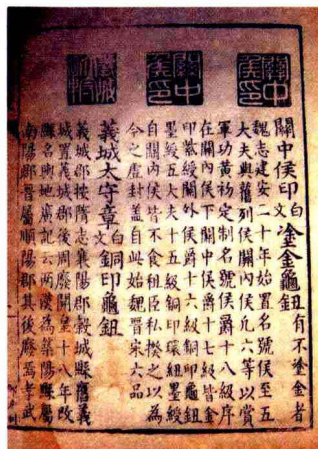 關中侯印
關中侯印
關中侯印白文塗金龜鈕有不塗金者
魏志建安二十年始置名號侯至五
大夫與舊列侯關內侯凡六等以賞
軍功黃初定制名號侯爵十八級序
在關內侯下關中侯爵十七級皆金
印紫綬關外侯爵十六級銅印龜鈕
墨綬五大夫十五級銅印環鈕墨綬
自關內侯皆不食租臣私揆之以為
今之虛封蓋自此始魏晉宋六品
義城太守章白文銅印龜鈕
義城郡按隋志襄陽郡穀城縣舊義
城置義城郡後周廢開皇十八年改
縣名輿地廣記云兩漢為築陽縣屬
南陽郡晉屬順陽郡其後廢焉孝武